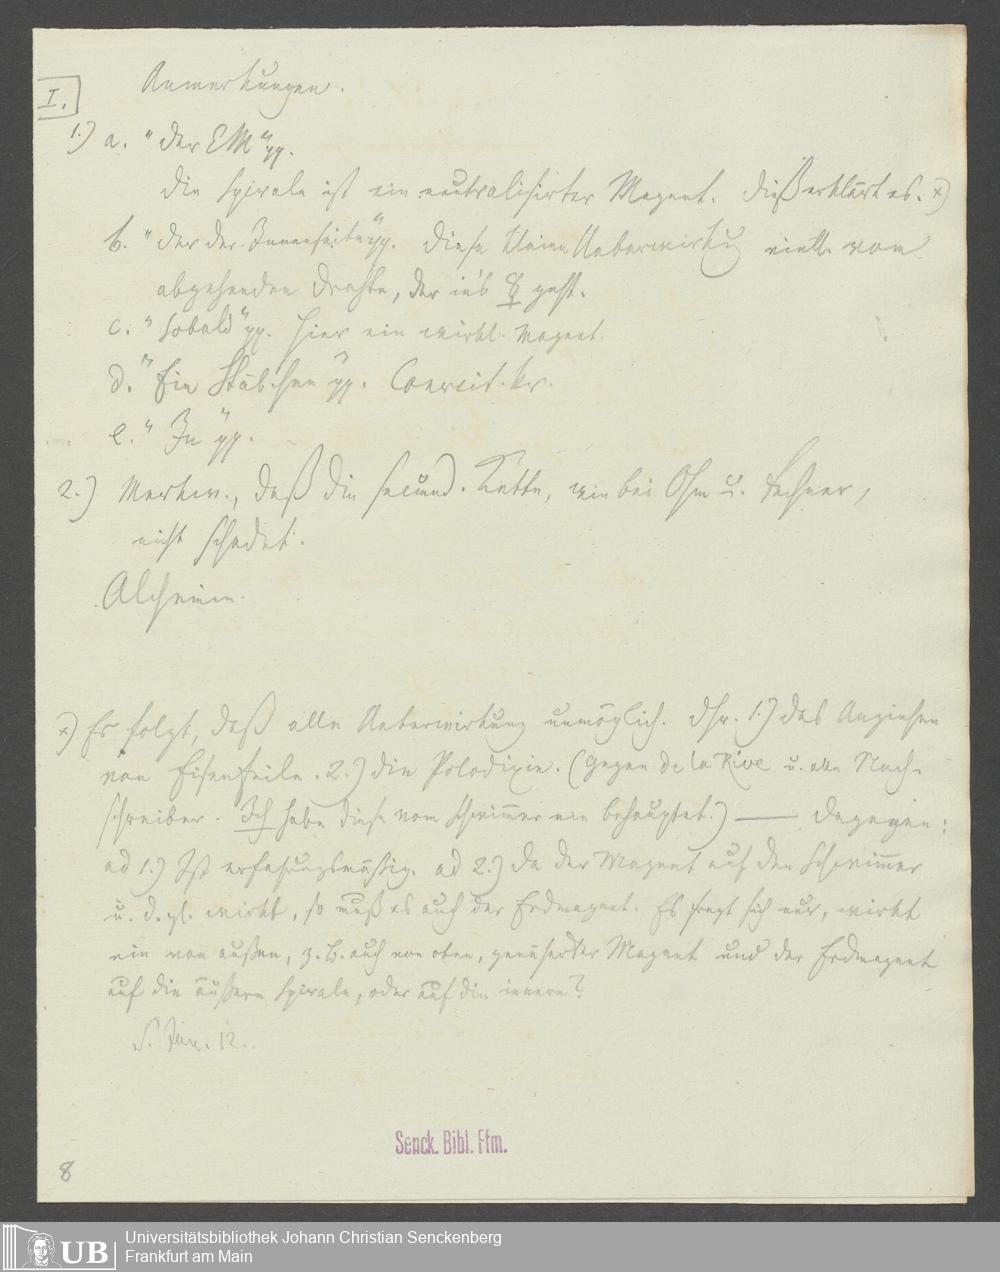 I.
Anmerkungen.
1.) a. "der EM" pp.
die Spirale ist ein neutralisirter Magnet. Dieß erklärt es. x)
b. "der der Innenseite" pp. diese kleine Ueberwirkg vom
abgehenden Drahte, der in's ☿ geht.
c. "sobald" pp. hier ein wirkl. Magnet.
d. "Ein Stäbchen" pp. Coercit. kr.
e. "In" pp.
2.) Merkw., daß die secund. Kette, wie bei Ohm u. Fechner,
nicht schadet.
x) Es folgt, daß alle Ueberwirkung unmöglich. Ds. 1.) das Anziehen
von Eisenfeile. 2.) die Polodixie. (gegen de la Rive u. alle Nach-
schreiber. Ich habe diese vom Schwimmer nie behauptet.) — Dagegen:
ad 1.) Ist erfahrungsmäßig. ad 2.) da der Magnet auf den Schwimmer
u. d. gl. wirkt, so muß es auch der Erdmagnet. Es fragt sich nur, wirkt
ein von außen, z. B. auch von oben, genäherter Magnet und der Erdmagnet
auf die äußere Spirale, oder auf die innere?
S. Jan. 12.
Senck. Bibl. Ffm.
8
UB
Universitätsbibliothek Johann Christian Senckenberg
Frankfurt am Main